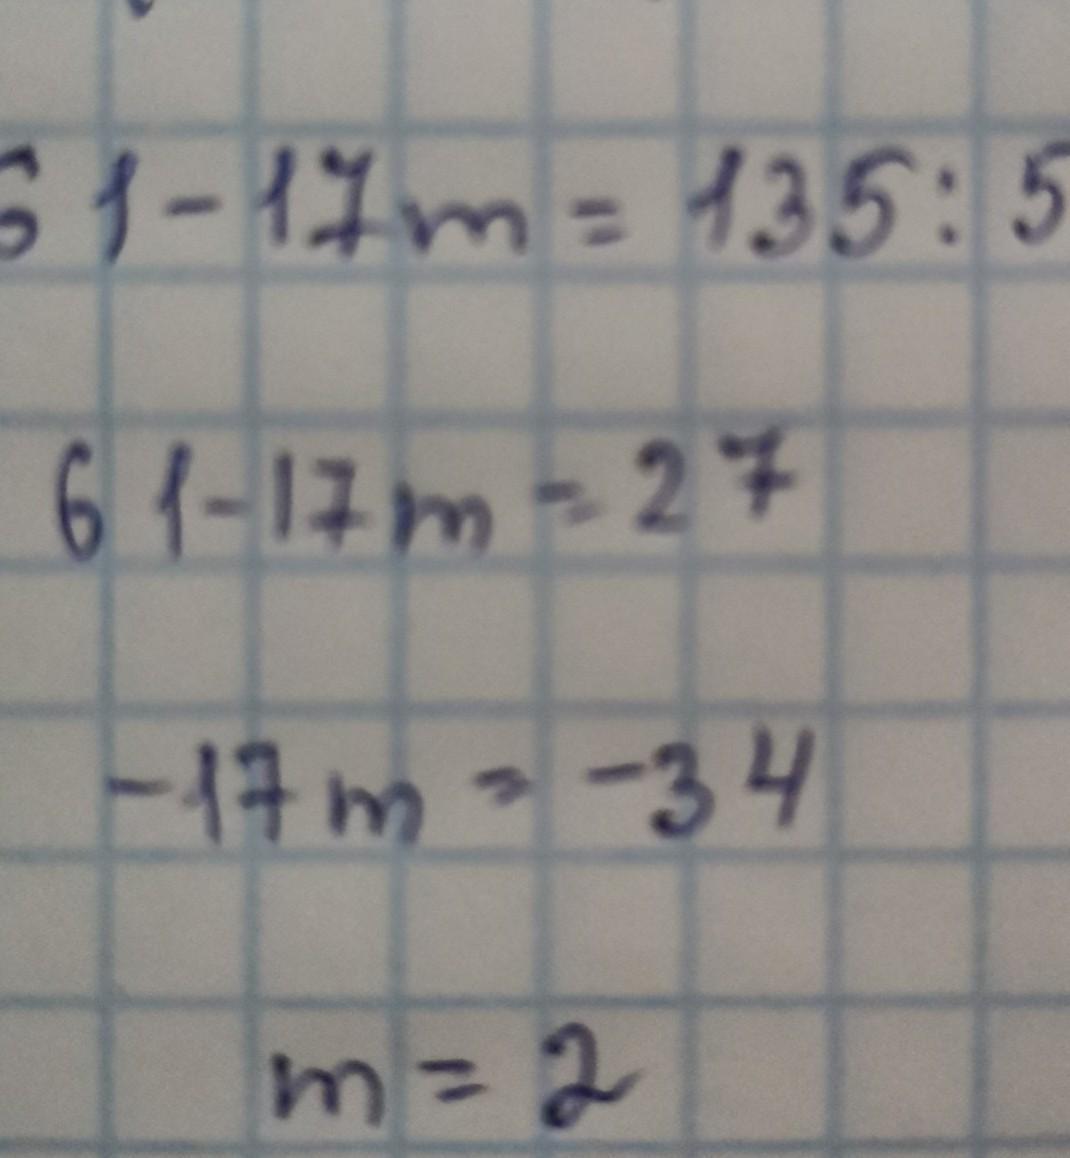 61-17m=135:5
61-17m=27
-17m=-34
m=2